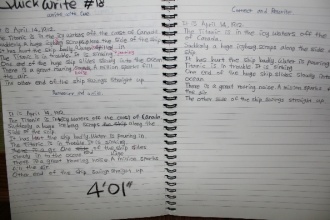 Quick Write #18
write with Cue
It is April 14, 1912.
The Titanic is in the icy waters off the coast of Canada.
Suddenly a huge iceberg scrapes along the side of the ship.
The Titanic is in trouble. It is sinking
One end of the huge ship slides slowly into the ocean
There is a great roaring noise. A million sparks fill
the air.
The other end of the ship swings straight up.
It is April 14, 1912
The Titanic is in icy waters off the coast of Canada
Suddenly a huge iceberg scrapes along the
side of the ship
It has hurt the ship badly. Water is pouring in.
The Titanic is in trouble. It is sinking.
One end of the ship slides
slowly in to the ocean
There is a great roaring noise. A million sparks
fill the air.
Other end of the ship swings straight up.
4'01"
Correct and Rewrite
It is April 14, 1912.
The Titanic is in the icy waters off the coast
of Canada.
Suddenly a huge iceberg scrapes along the side
of the ship.
It has hurt the ship badly. Water is pouring in.
The Titanic is in trouble. It is sinking
One end of the huge ship slides slowly into the
ocean.
There is a great roaring noise. A million sparks
fill the air.
The other side of the ship swings straight up.